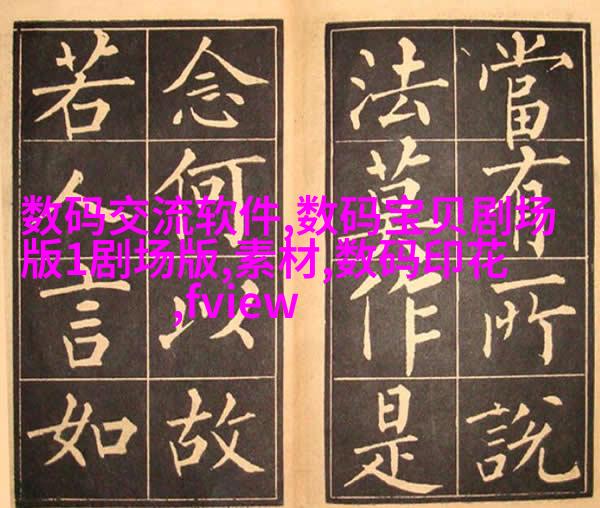 當有所說
法莫作是
念何以故
若人言如
数码交流软件,数码宝贝剧场
版1剧场版,素材,数码印花
,fview